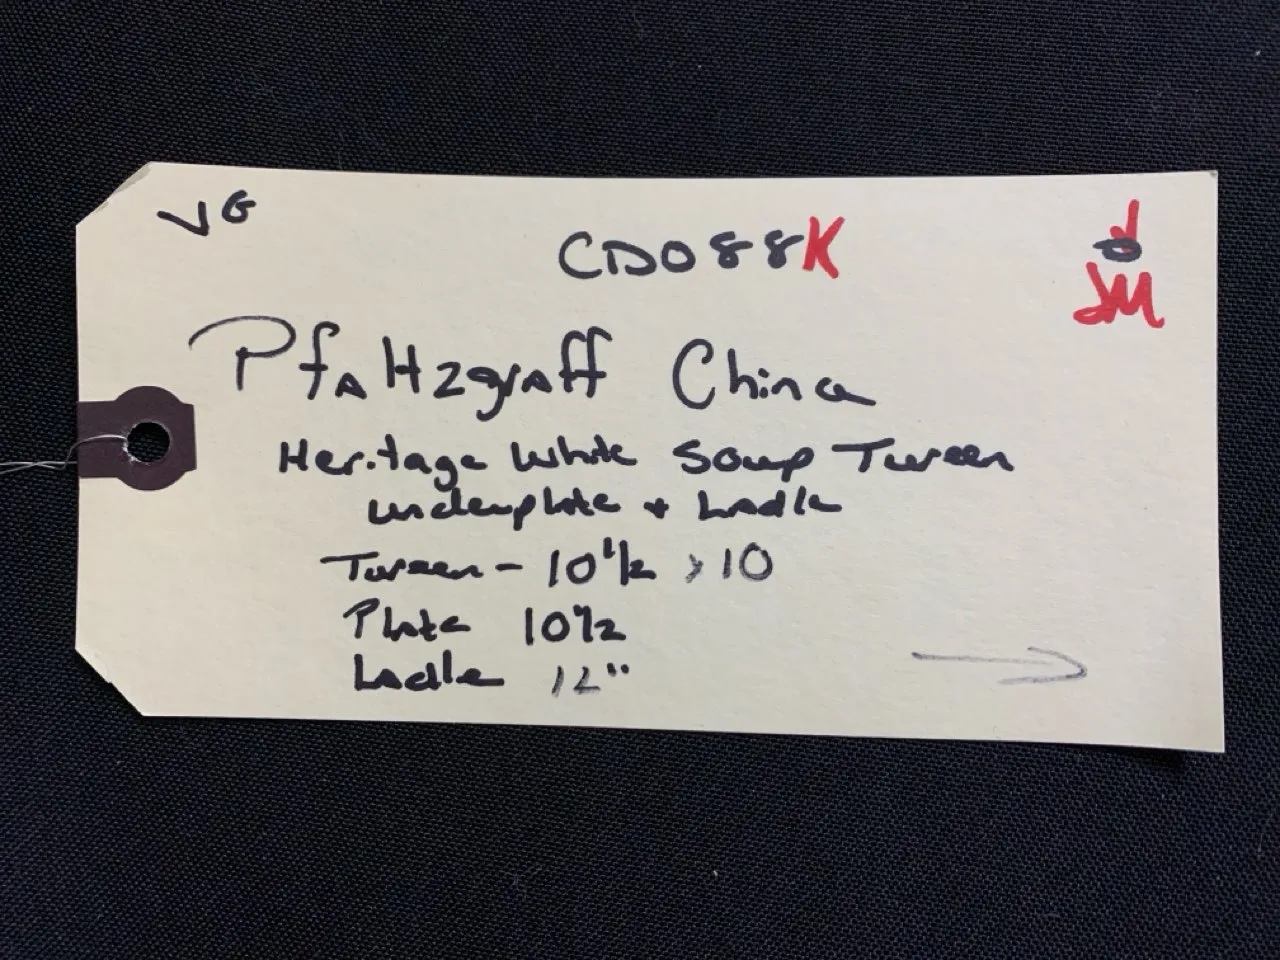 VG
CD088K
JM
PfAltzgraff China
Heritage White Soup Tureen
underplate + Ladle
Tureen - 10 1/2 x 10
Plate 10 1/2
Ladle 12"